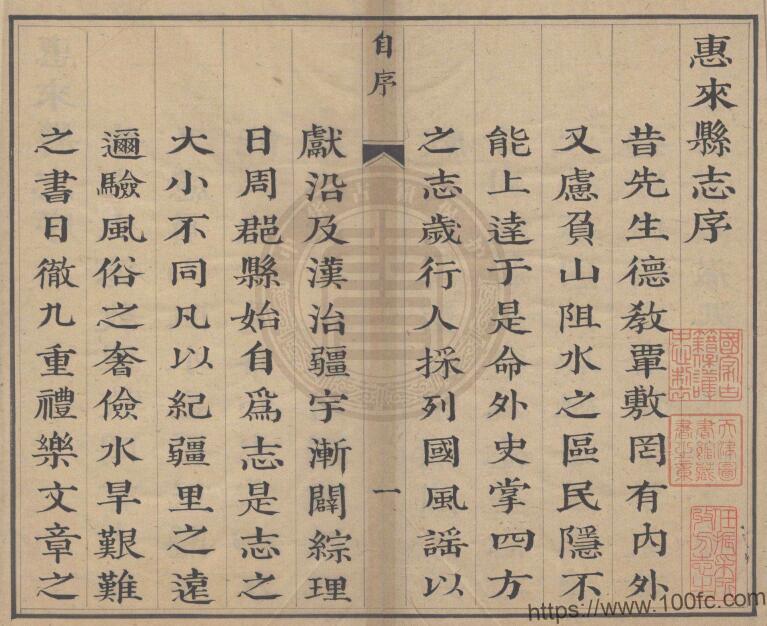 惠來縣志序
昔先生德敎覃敷罔有內外
又慮負山阻水之區民隱不
能上達于是命外史掌四方
之志歲行人採列國風謡以
自序
一
獻沿及漢治疆宇漸闢綜理
日周郡縣始自爲志是志之
大小不同凡以紀疆里之遠
邇驗風俗之奢儉水旱艱難
之書日徹九重禮樂文章之
https://www.100fc.com